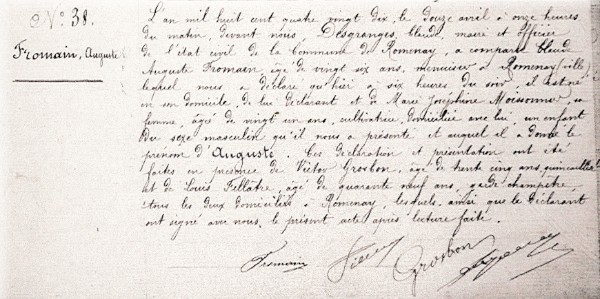 N° 38.
Fromain, Auguste
L'an mil huit cent quatre vingt dix, le douze avril à onze heures
du matin, devant nous, Desgranges, Claude, maire et officier
de l'état civil de la Commune de Romenay, a comparu Claude
Auguste Fromain, âgé de vingt six ans, menuisier à Romenay (ville)
lequel nous a déclaré qu'hier à six heures du soir, il est né
en son domicile, de lui déclarant et de Marie Joséphine Moissonnier, sa
femme, âgée de vingt un ans, cultivatrice, domiciliée avec lui, un enfant
du sexe masculin qu'il nous a présenté et auquel il a donné le
prénom d'Auguste. Ces déclaration et présentation ont été
faites en présence de Victor Grosbon, âgé de trente cinq ans, quincaillier
et de Louis Pellâtre, âgé de quarante neuf ans, garde champêtre,
tous les deux domiciliés à Romenay, lesquels, ainsi que le déclarant
ont signé avec nous, le présent acte après lecture faite.
Fromain
Grosbon